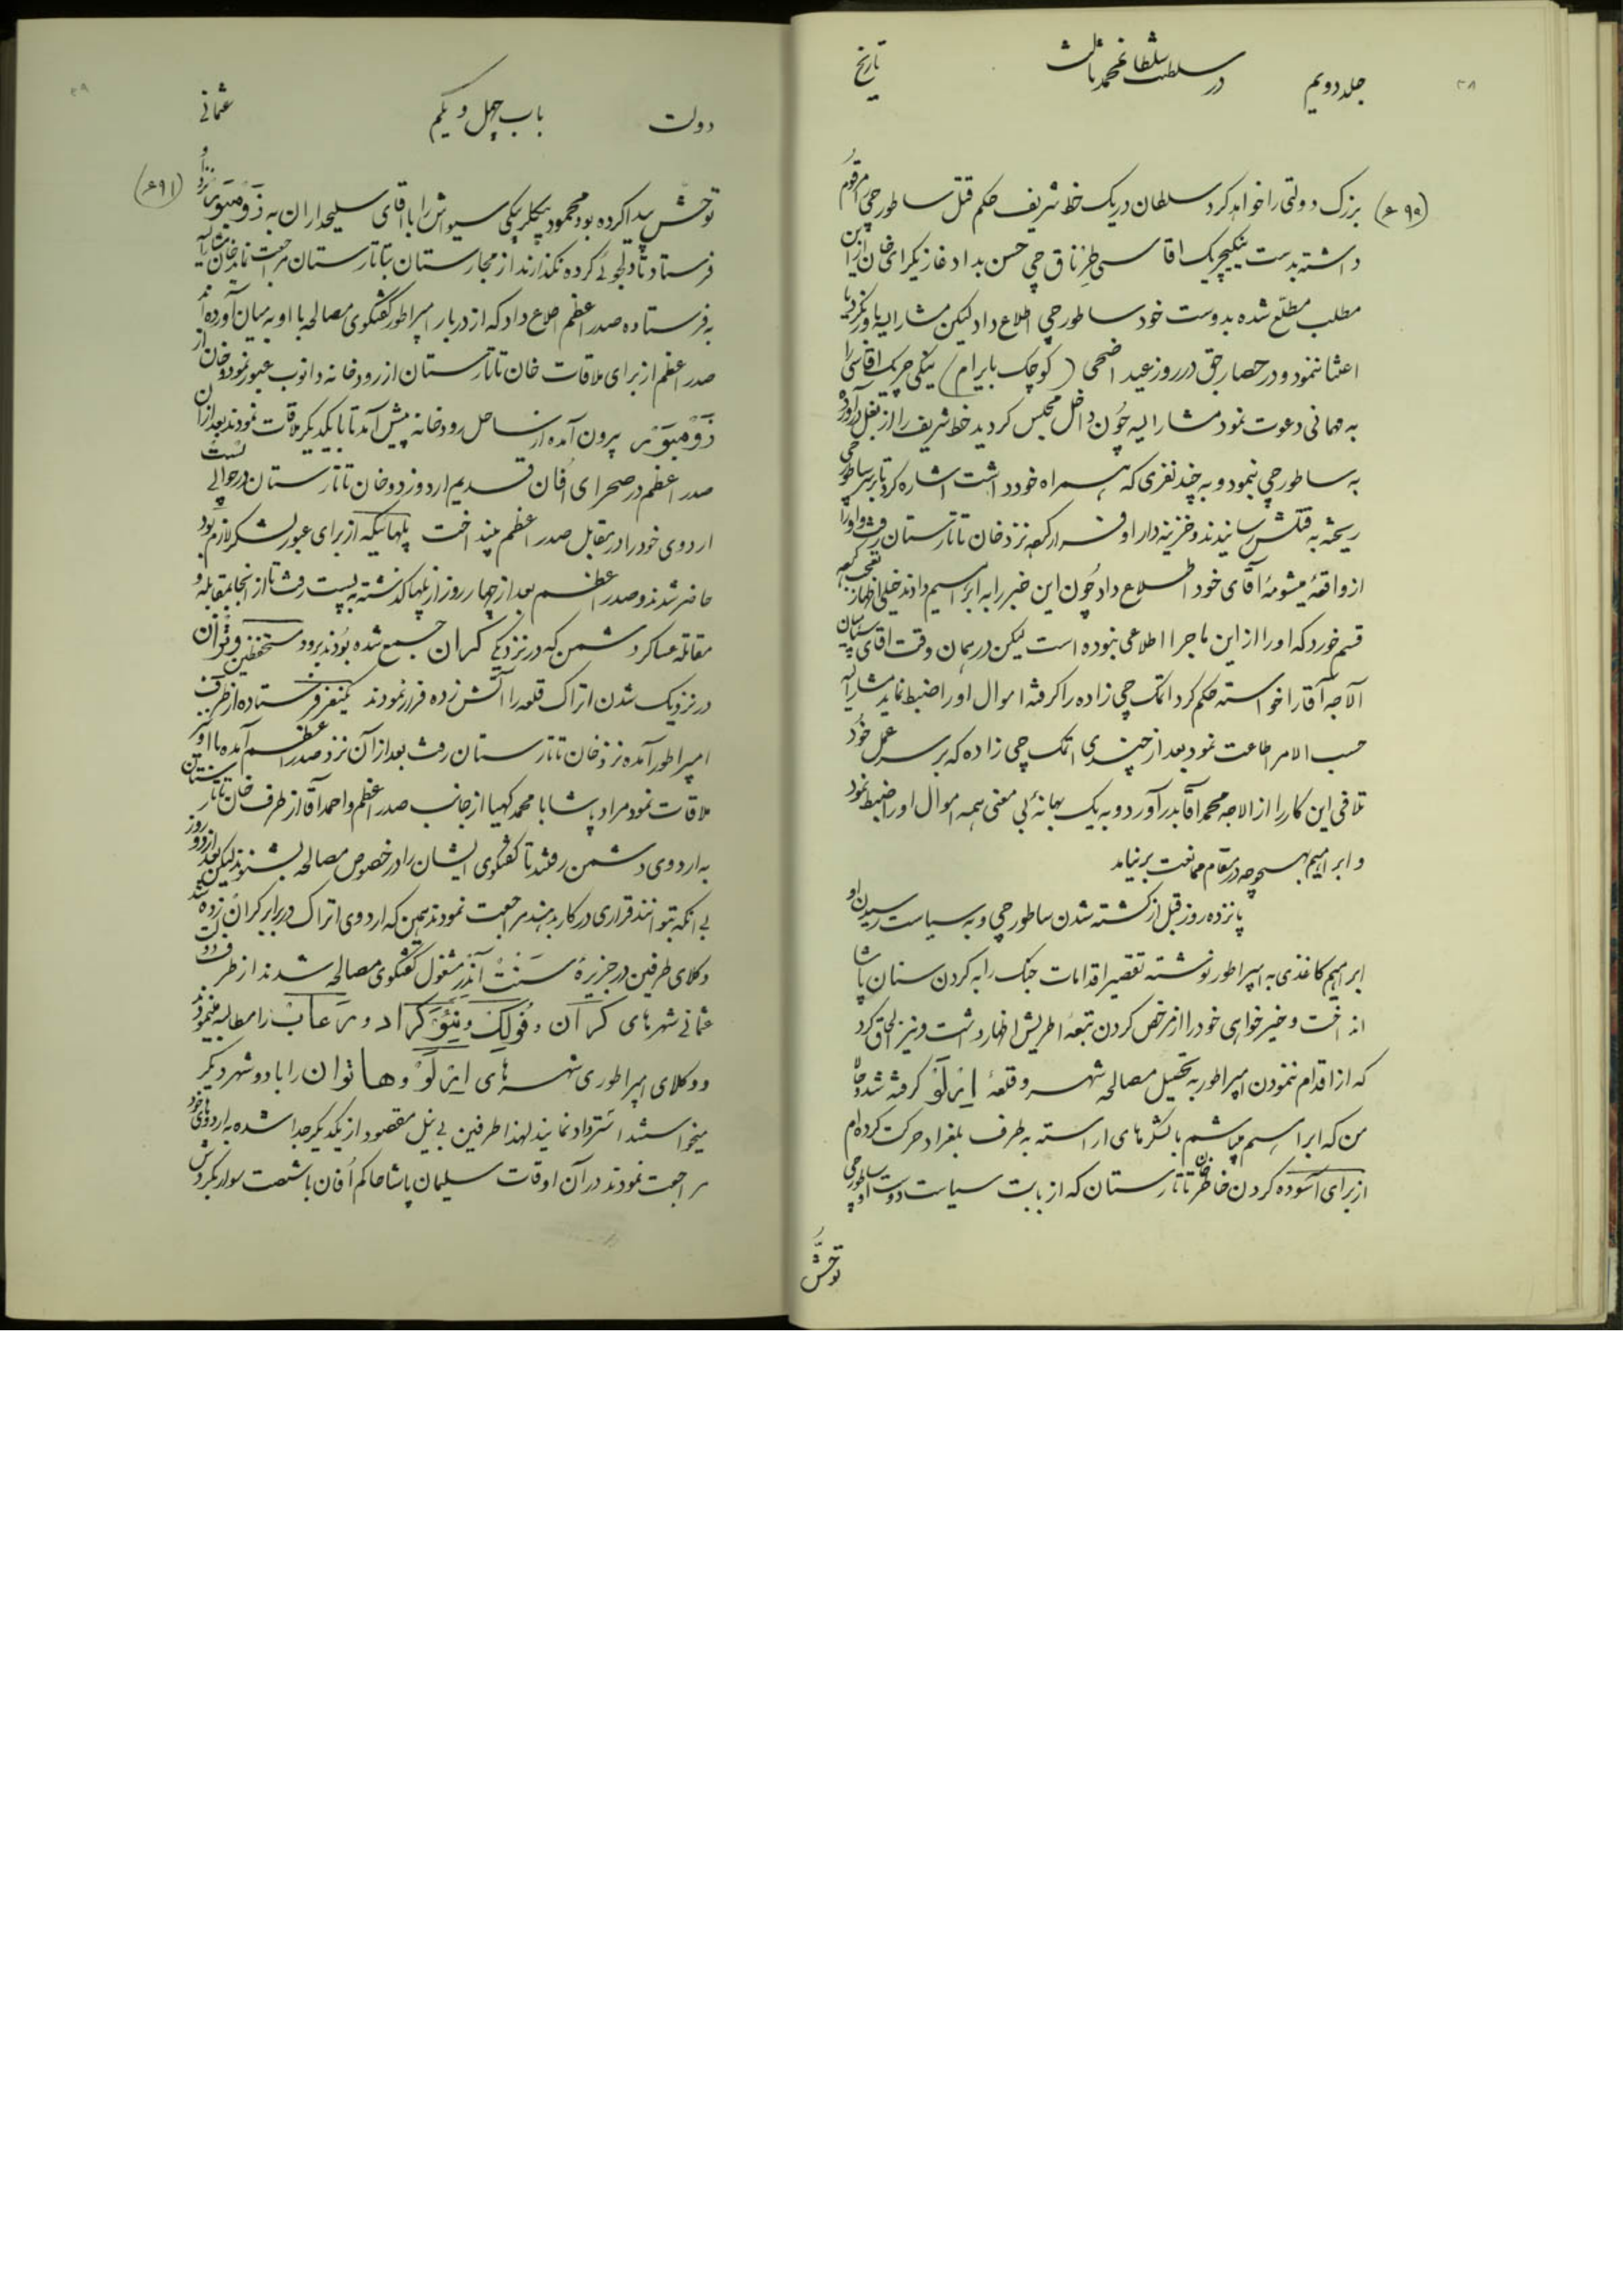 ۳۸
جلد دویم در سلطنت سلطان محمد ثالث تاریخ
(۹۰ع) بزرک دولتی را خواهد کرد سلطان دریک خط شریف حکم قتل ساطورجی مرقوم
داشته بدست ینکیچریک اقاسی طرناق چی حسن بداد غازیکرای خان از این
مطلب مطلع شده بدوست خود ساطورجی اطلاع داد لیکن مشارالیه باور نکرد یا
اعتنا ننمود و در حصار جق در روز عید اضحی (کوچک بایرام) ینکی چریک اقاسی را
به مهمانی دعوت نمود مشارالیه چون داخل مجلس کردید خط شریف را از بغل درآورد
به ساطورجی بنمود و به چند نفری که همراه خود داشت اشاره کرد تا بر ساطورجی
ریخته به قتلش رسانیدند و خزینه دار او فرار کرده نزد خان تاتارستان رفت و او را
از واقعهٔ میشومهٔ آقای خود اطلاع داد چون این خبر را به ابراهیم دادند خیلی اظهار تعجب کرده
قسم خورد که او را از این ماجرا اطلاعی نبوده است لیکن در همان وقت اقای سپاهیان
آلاجه آقا را خواسته حکم کرد اتمک چی زاده را کرفته اموال او را ضبط نماید مشارالیه
حسب الامر طاعت نمود بعد از چندی اتمک چی زاده که بر سر عمل خود
تلافی این کار را از الاجه محمد آقا بدر آورد و به یک بهانهٔ بی معنی همه اموال او را ضبط نمود
و ابراهیم بهیچوجه در مقام ممانعت برنیامد
پانزده روز قبل از کشته شدن ساطورجی و به سیاست رسیدن او
ابراهیم کاغذی به امپراطور نوشته تقصیر اقدامات جنک را به کردن سنان پاشا
انداخت و خیرخواهی خود را از مرخص کردن تبعهٔ اطریش اظهار داشت و نیز الحاق کرد
که از اقدام نمودن امپراطور به تحصیل مصالحه شهر و قلعهٔ ایرلو کرفته شد و حالا
من که ابراهیم میباشم با لشکرهای اراسته به طرف بلغراد حرکت کرده ام
از برای آسوده کردن خاطر خان تاتارستان که از بابت سیاست دوست او ساطورجی
توحش
دولت باب چهل و یکم عثمانی
(۹۱ع) توحش پیدا کرده بود محمود بیکلر بیکی سیواش را با اقای سلیحداران به زومبور نزد او
فرستاد تا دلجوئی کرده نکذارند از مجارستان بتاتارستان مراجعت نماید خان مشارالیه
به فرستاده صدر اعظم اطلاع داد که از دربار امپراطور کفتکوی مصالحه با او به میان آورده اند
صدر اعظم از برای ملاقات خان تاتارستان از رودخانه دانوب عبور نمود و خان از
زومبور بیرون آمده از ساحل رودخانه پیش آمد تا با یکدیکر ملاقات نمودند بعد از آن
صدر اعظم در صحرای اُفان قدیم اردو زد و خان تاتارستان در حوالی پست
اردوی خود را در مقابل صدر اعظم بینداخت پلهائیکه از برای عبور لشکر لازم بود
حاضر شدند و صدر اعظم بعد از چهار روز از پلها کذشته به پست رفت تا از انجا بمقابله و
مقاتله عساکر دشمن که در نزدیکی کران جمع شده بودند برود مستحفظین
در نزدیک شدن اتراک قلعه را آتش زده فرار نمودند یکنفر فرستاده از طرف
امپراطور آمده نزد خان تاتارستان رفت بعد از آن نزد صدر اعظم آمده با او
ملاقات نمود مراد پاشا با محمد کهیا از جانب صدر اعظم و احمد آقا از طرف خان تاتارستان
به اردوی دشمن رفتند تا کفتکوی ایشان را در خصوص مصالحه بشنوند لیکن بعد از دو روز
بی انکه بتوانند قراری در کار بدهند مراجعت نمودند همین که اردوی اتراک در برابر کران زده شد
وکلای طرفین در جزیرهٔ سنت آندر مشغول کفتکوی مصالحه شدند از طرف دولت
عثمانی شهرهای کران و فولک و نیوکراد و رعاب را مطالبه مینمودند
و وکلای امپراطوری شهرهای ایرلو و هاتوان را با دو شهر دیکر
میخواستند استرداد نمایند لهذا طرفین بی نیل مقصود از یکدیکر جدا شده به اردوهای خود
مراجعت نمودند در آن اوقات سلیمان پاشا حاکم اُفان با شصت سوار بکردش